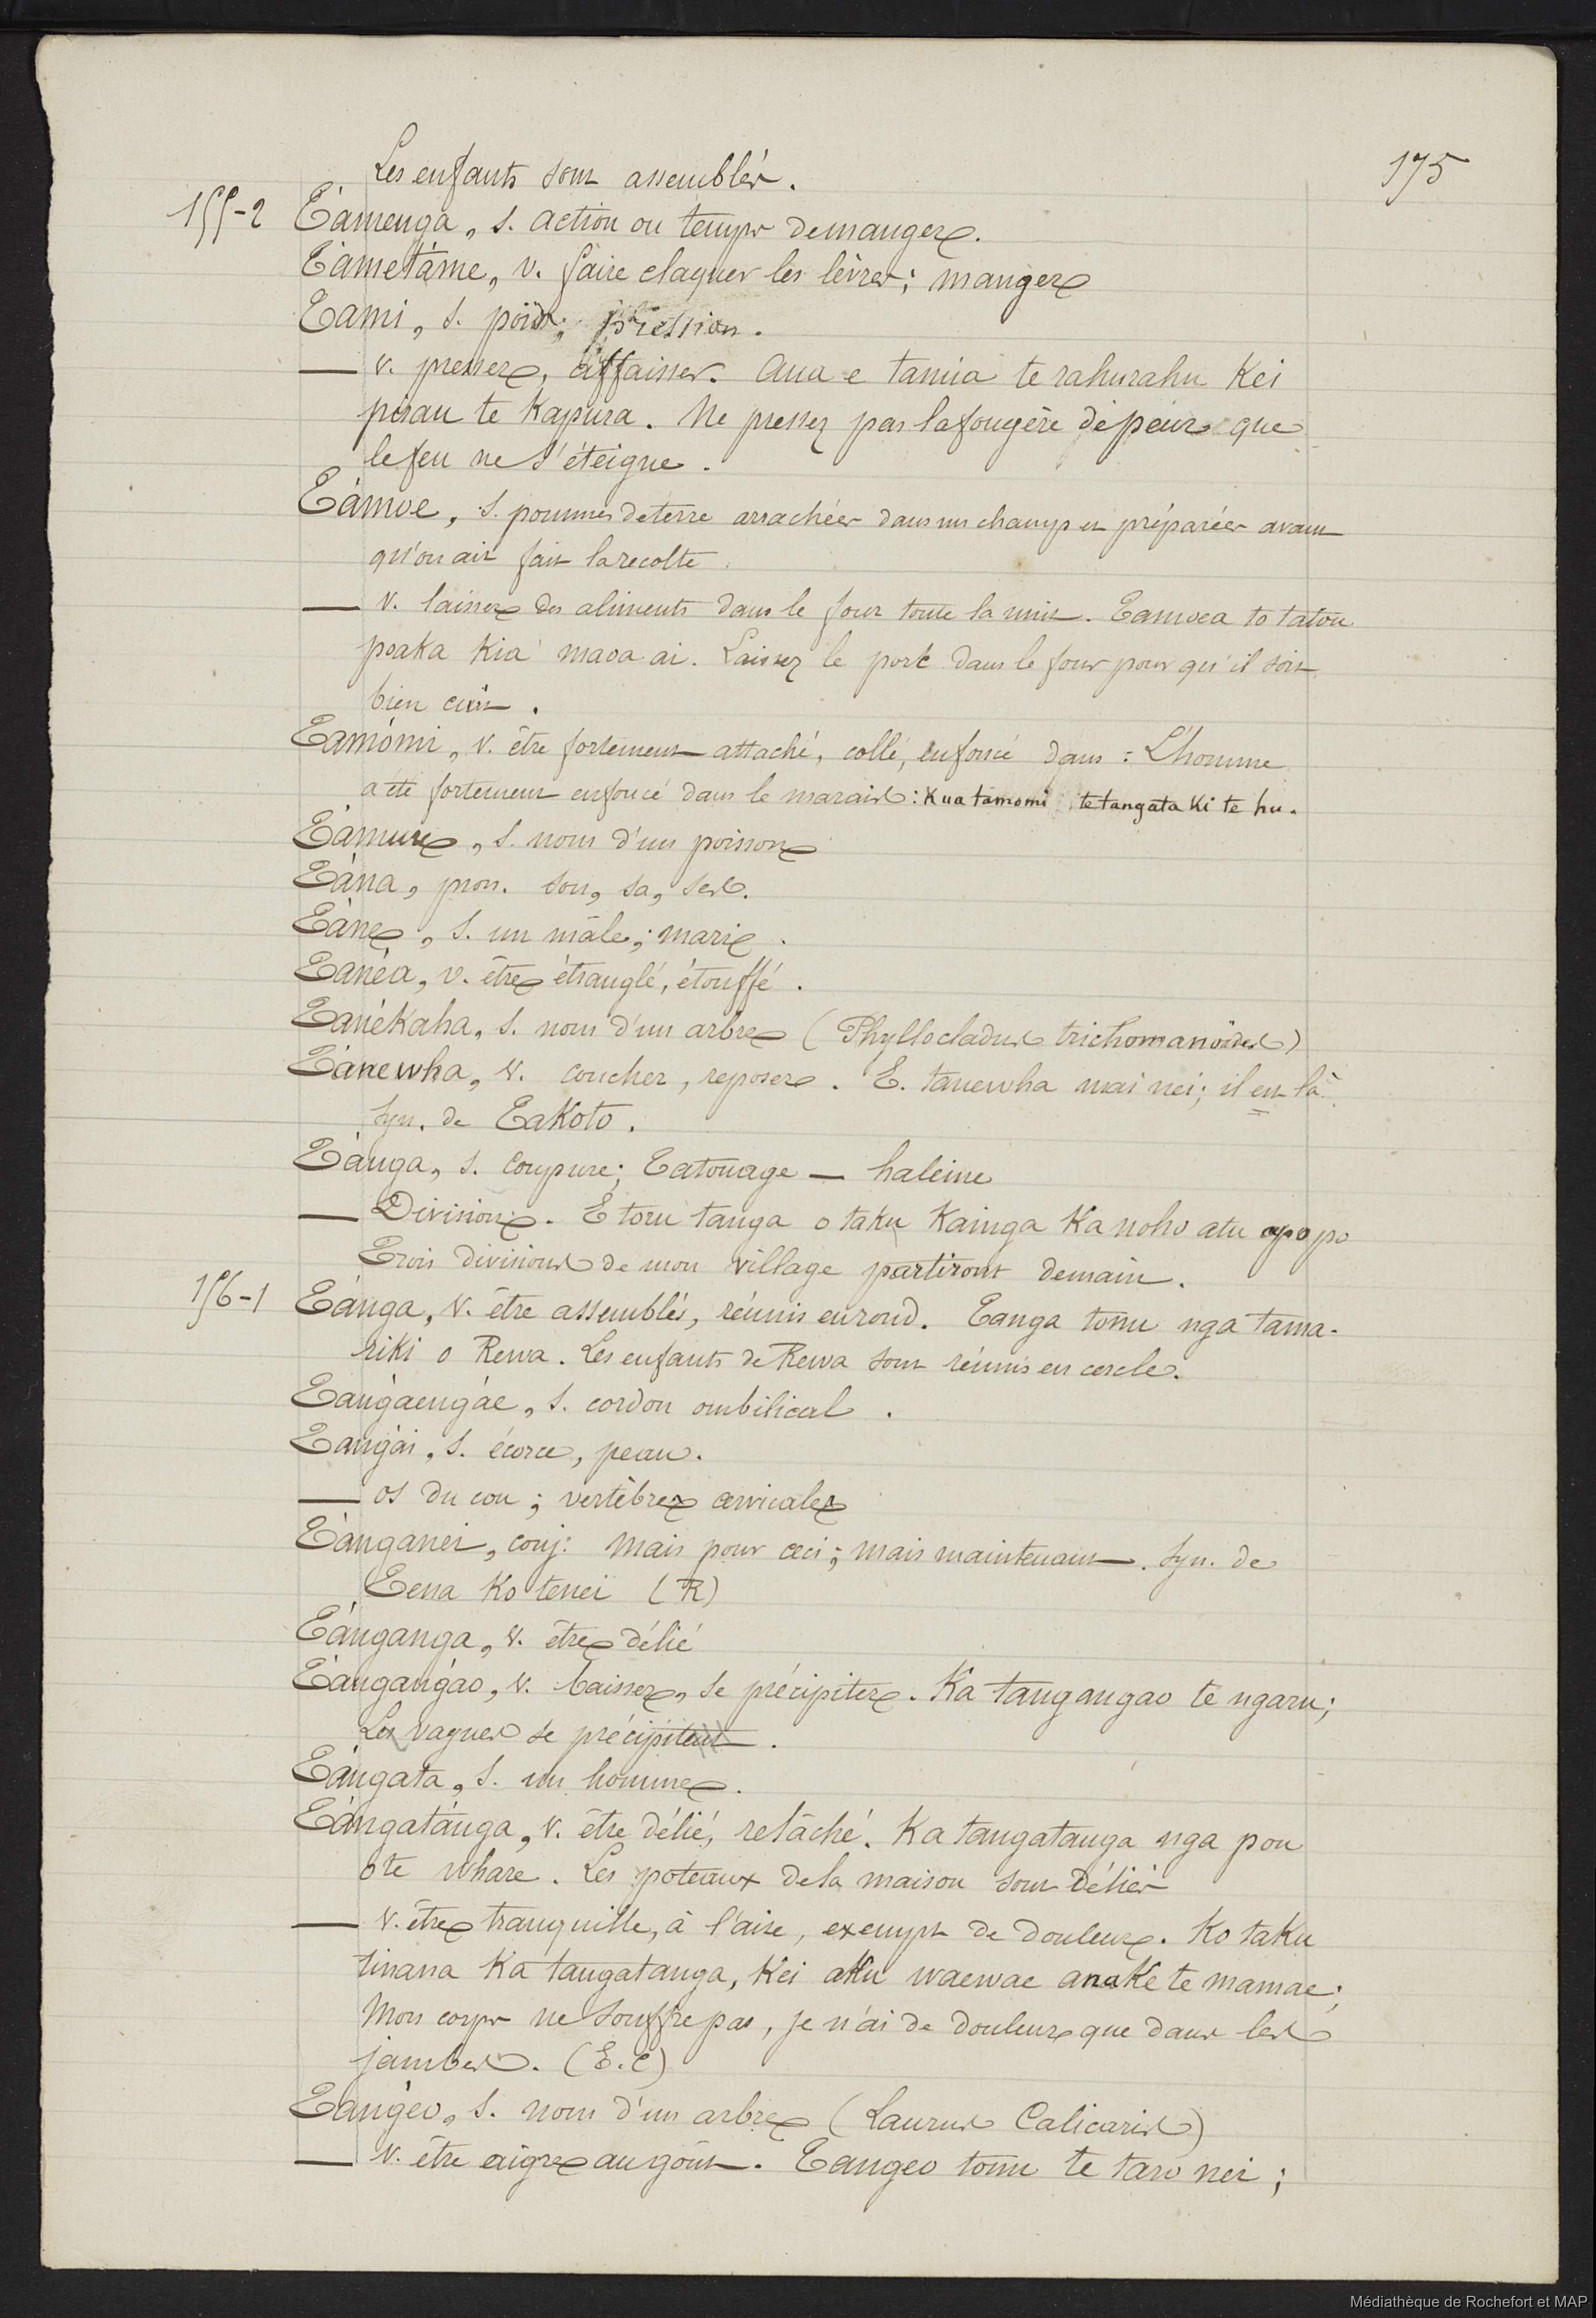 175
Les enfants sont assemblés.
155-2 Támenga, s. action ou temps de manger.
Támetáme, v. faire claquer les lèvres; manger
Tami, s. poids; pression.
— v. presser, affaisser. Aua e tamia te rahurahu kei
pirau te Kapura. Ne pressez pas la fougère de peur que
le feu ne s'éteigne.
Támoe, s. pommes de terre arrachées dans un champ et préparées avant
qu'on ait fait la recolte.
— v. laisser des aliments dans le four toute la nuit. Tamoea to tatou
poaka Kia maoa ai. Laissez le pork dans le four pour qu'il soit
bien cuit.
Tamómi, v. être fortement attaché, collé, enfoncé dans : L'homme
a été fortement enfoncé dans le marais : Kua tamomi te tangata ki te hu.
Támure, s. nom d'un poisson
Tána, pron. son, sa, ses.
Táne, s. un mâle; mari.
Tanéa, v. être étranglé, étouffé.
Tanékaha, s. nom d'un arbre (Phyllocladus trichomanoïdes)
Tánewha, v. coucher, reposer. E. tanewha mai nei; il est là.
Syn. de Takoto.
Tánga, s. Coupure; Tatouage — haleine
— Division. E toru tanga o taku Kainga Ka noho atu apopo
Trois divisions de mon village partiront demain.
156-1 Tánga, v. être assemblés, réunis en rond. Tanga tonu nga tama-
riki o Rewa. Les enfants de Rewa sont réunis en cercle.
Tangáengáe, s. cordon ombilical.
Tangái, s. écorce, peau.
— os du cou; vertèbres cervicales
Tánganei, conj: mais pour ceci; mais maintenant. Syn. de
Tena Ko tenei (R)
Tánganga, v. être délié
Tángangáo, v. baisser, se précipiter. Ka tangangao te ngaru;
Les vagues se précipitent.
Tángata, s. un homme.
Tángatánga, v. être délié, relâché. Ka tangatanga nga pou
o te whare. Les poteaux de la maison sont déliés
— v. être tranquille, à l'aise, exempt de douleur. Ko taku
tinana Ka tangatanga, Kei aku waewae anake te mamae;
Mon corps ne souffre pas, je n'ai de douleur que dans les
jambes. (E.C)
Tangéo, s. nom d'un arbre (Laurus Calicaris)
— v. être aigre au goût. Tangeo tonu te taro nei;
Médiathèque de Rochefort et MAP